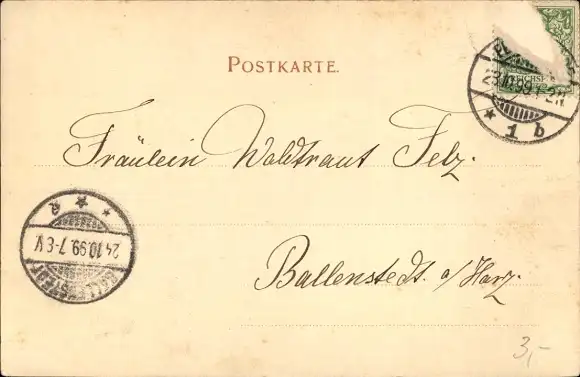 POSTKARTE.
REICHSP
23.10.99.1-2N.
* 1 b
Fräulein Waldtraut Felz.
24.10.99.7-8V
BALLENSTEDT
Ballenstedt a/Harz.
3,-